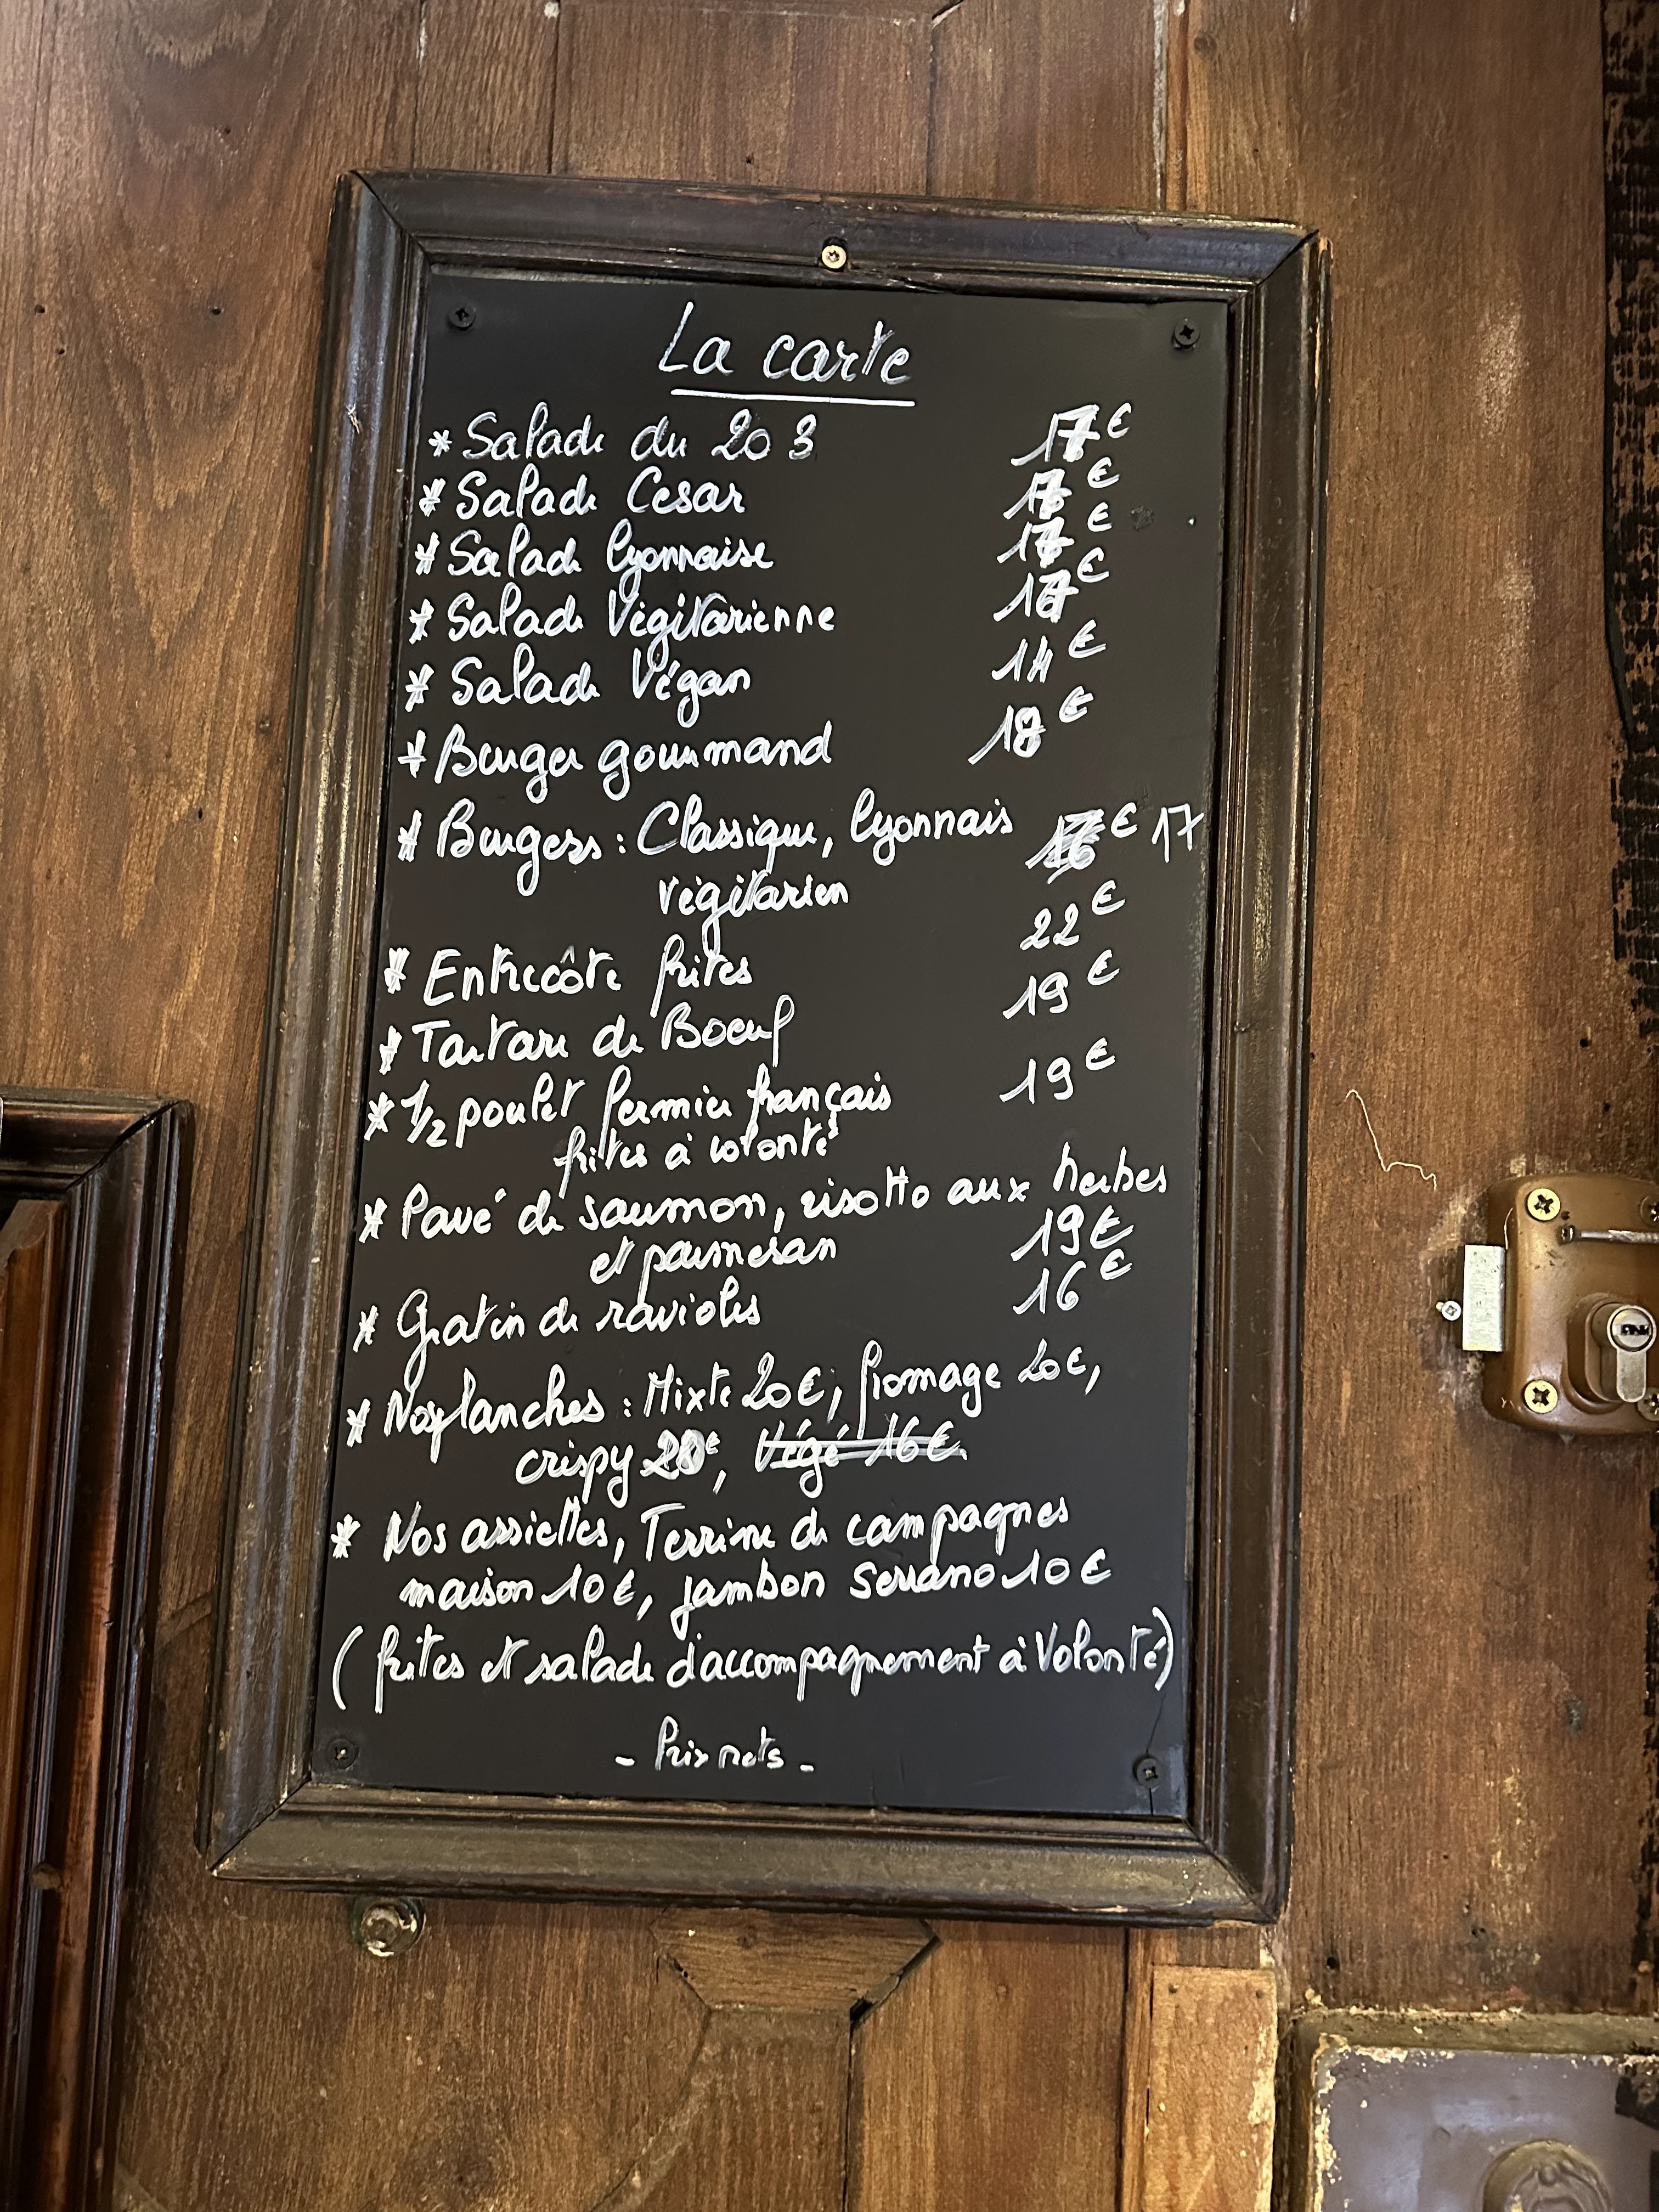 La carte
* Salade du 203 17€
* Salade Cesar 17€
* Salade lyonnaise 17€
* Salade Végétarienne 17€
* Salade Végan 14€
* Burger gourmand 18€
* Burgers : Classique, lyonnais € 17
végétarien
* Entrecôte frites 22€
* Tartare de Boeuf 19€
* 1/2 poulet fermier français 19€
frites à volonté
* Pavé de saumon, risotto aux herbes
et parmesan 19€
* Gratin de ravioles 16€
* Nos planches : Mixte 20€, fromage 20€,
crispy 20€, Végé 16€.
* Nos assiettes, Terrine de campagnes
maison 10€, jambon Serrano 10€
(frites et salade d'accompagnement à Volonté)
- Prix nets -